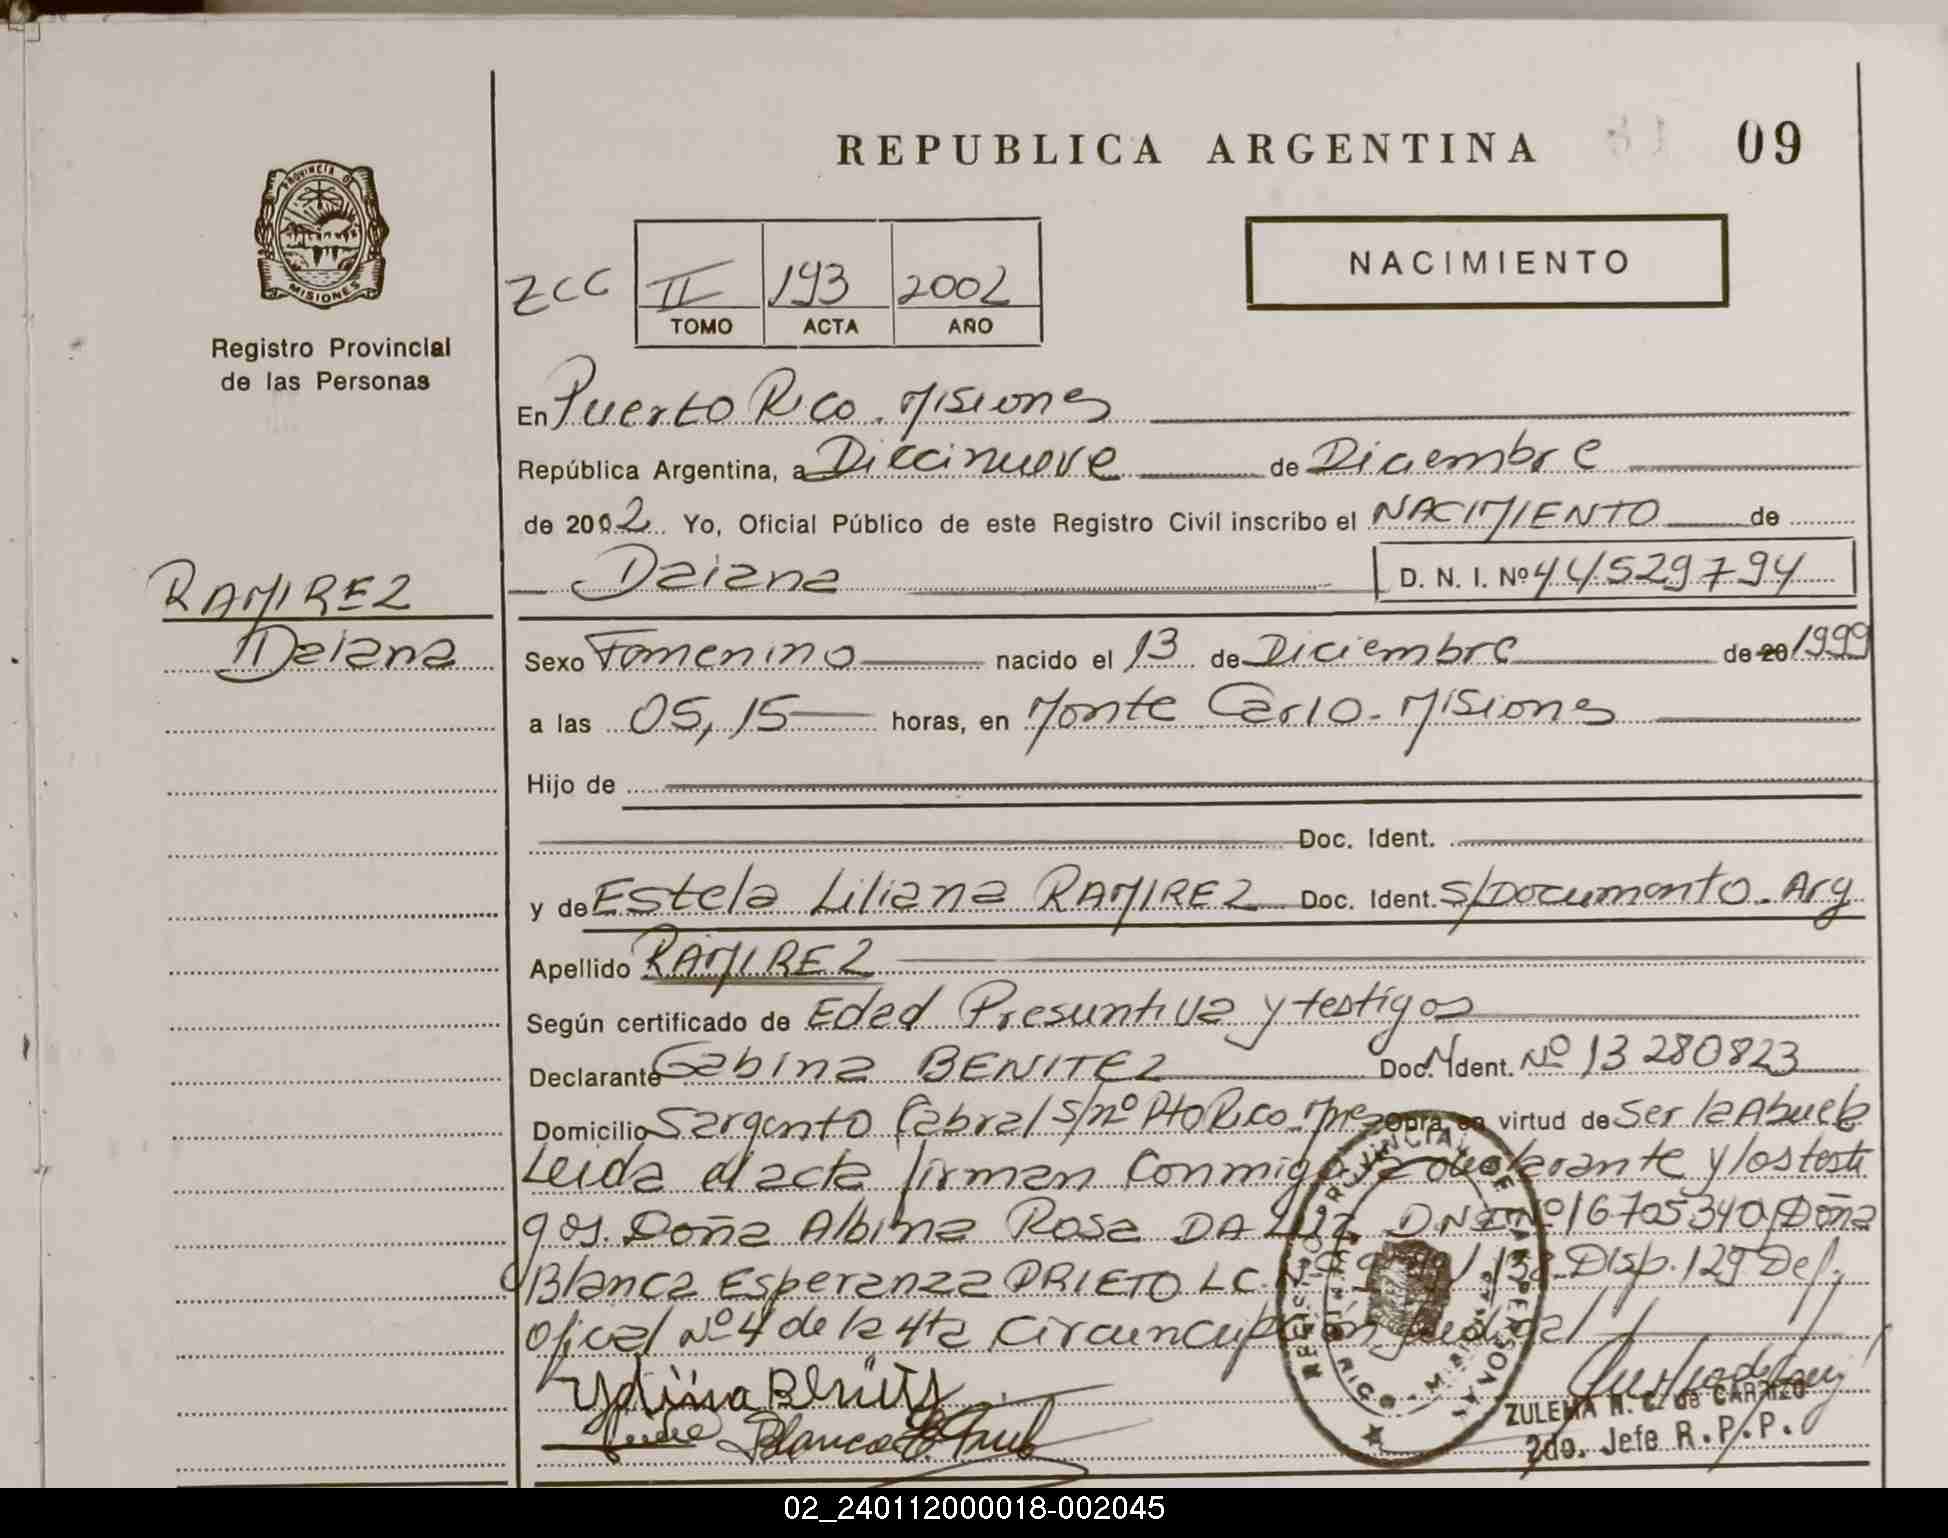 REPUBLICA ARGENTINA
09
PROVINCIA DE
MISIONES
Registro Provincial
de las Personas
ZCC
II 193 2002
TOMO ACTA AÑO
NACIMIENTO
En Puerto Rico. Misiones
República Argentina, a Diecinueve de Diciembre
de 2002 Yo, Oficial Público de este Registro Civil inscribo el NACIMIENTO de
Daiana D. N. I. Nº 44529794
RAMIREZ
Daiana
Sexo Femenino nacido el 13 de Diciembre de 20 1999
a las 05,15 horas, en Monte Carlo. Misiones
Hijo de
Doc. Ident.
y de Estela Liliana RAMIREZ Doc. Ident. S/Documento. Arg
Apellido RAMIREZ
Según certificado de Edad Presuntiva y testigos
Declarante Gabina BENITEZ Doc. Ident. Nº 13280823
Domicilio Sargento Cabral s/nº Pto Rico. Mnes Obra en virtud de Ser la Abuela
Leida el acta firman Conmigo la declarante y los testi
gos. Doña Albina Rosa DA LUZ DNI Nº 16705340, Doña
Blanca Esperanza PRIETO LC. Disp. 129 Def.
Oficial Nº 4 de la 4ta Circuncupción Judicial
Blanca E.
ZULEMA N. C. de CARRIZO
2do. Jefe R.P.P.
REGISTRO PROVINCIAL DE LAS PERSONAS
RICO - MISIONES
02_240112000018-002045